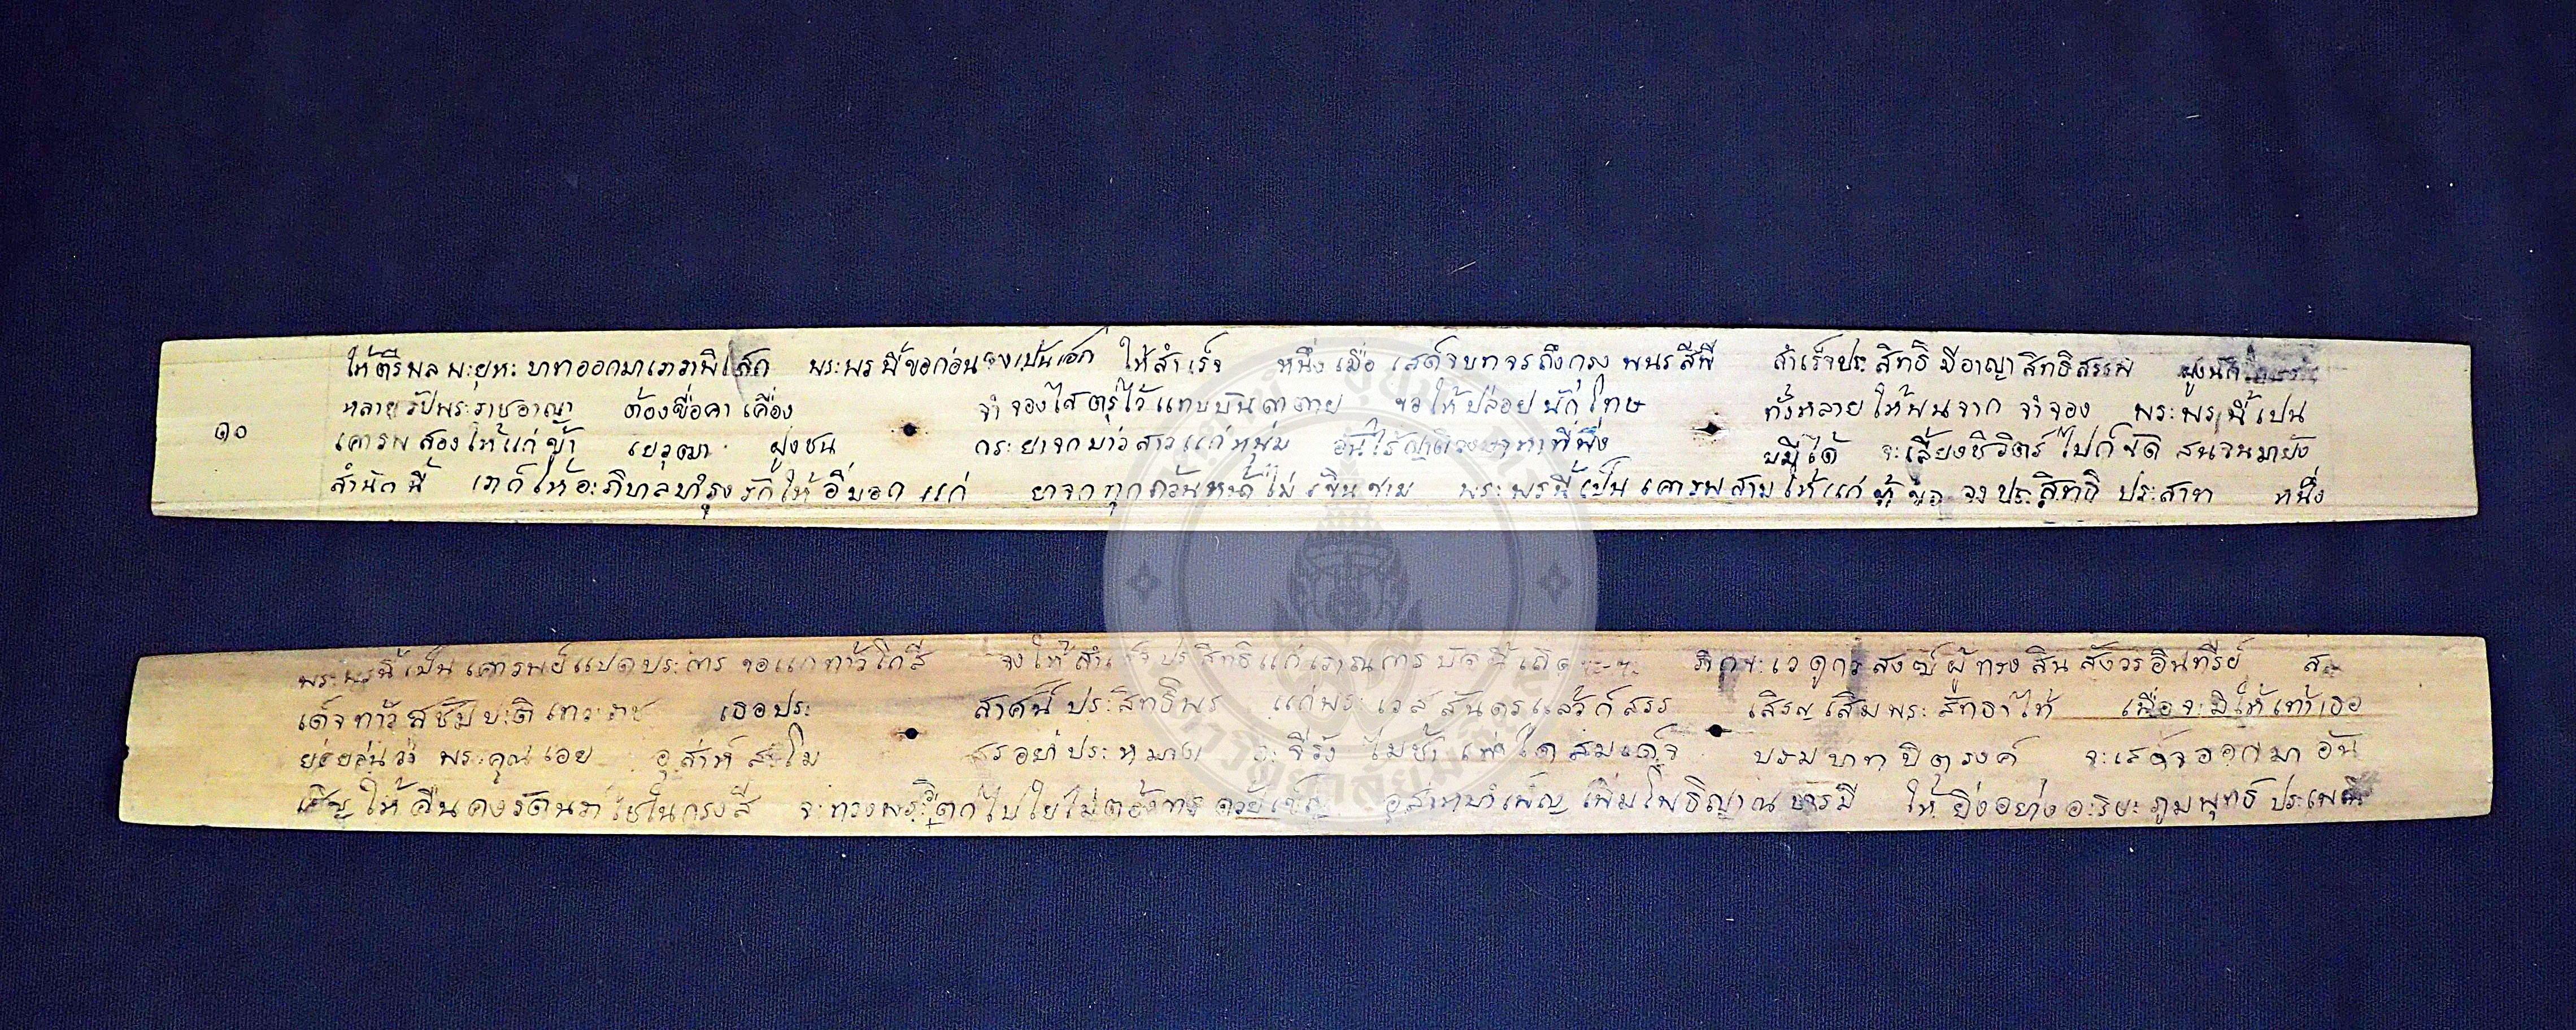 ให้ตรีพลพะยุหะบาทออกมาเภาวาพิเสก พระพรนี้ขอก่อนจงเปนเอก ให้สำเร็จ หนึ่งเมื่อ เสด็จบทจรถึงกรุงพนรสีพี สำเร็จประสิทธิมีอาญาสิทธิสรรพ ฝูงนัก
หลายรับพระราชอาญา ต้องขื่อคาเคื่อง จำจองไส่ตรุไว้แทบบันดาตาย ขอให้ปล่อยนักโทษ ทั้งหลายให้พ้นจาก จำจอง พระพรนี้เปน
๑๐
เคารพสองให้แก่ข้า ฝูงชน กระยาจกบ่าวสาวแก่หนุ่ม อันไร้ญาติวงษาหาที่พึ่ง บมีได้ จะเลี้ยงชีวิตร์ไปก็ขัด สนจนมายัง
สำนักนี้ เภก็ให้อะภิบาลบำรุงรักให้อิ่มออก แก่ ยาจกทุกถ้วนหน้าไม่เขินขาม พระพรนี้เป็นเคารพสามให้แก่ขอจงประสิทธิประสาท หนึ่ง
พระพรนี้เป็นเคารพย์แปดประการ ขอแกท้าวโกสี จงให้สำเร็จประสิทธิแก่ เถิด ภิกขะเวดูกรสงฆ์ผู้ทรงสินสังวรอินทรีย์ ส
เด็จท้าวสุชัมบะติเทวะราช เธอประ สาศน์ประสิทธิพร แก่พระเวสสันดรแล้วก็สรร เสิรญเสิมพระสัทธาให้ เมื่อจะมิให้เท้าเธอ
ย่อย่นว่า พระคุณเอย อุส่าห์สะโม สรอย่าประหมาท จะจีรัง ไม่ช้า สมเด็จ บรมบาทบิตุรงค์ จะเสด็จออกมาอัน
เสิญให้คืนคงรัตนาไชในกรุงสี จะทรงพระวิตกไปใยไม่ต้องการ อุส่าหบำเพ็ญเพิ่มโพธิญาณบารมี ให้ยิ่งอย่างอะริยะภูมพุทธิประเพณี